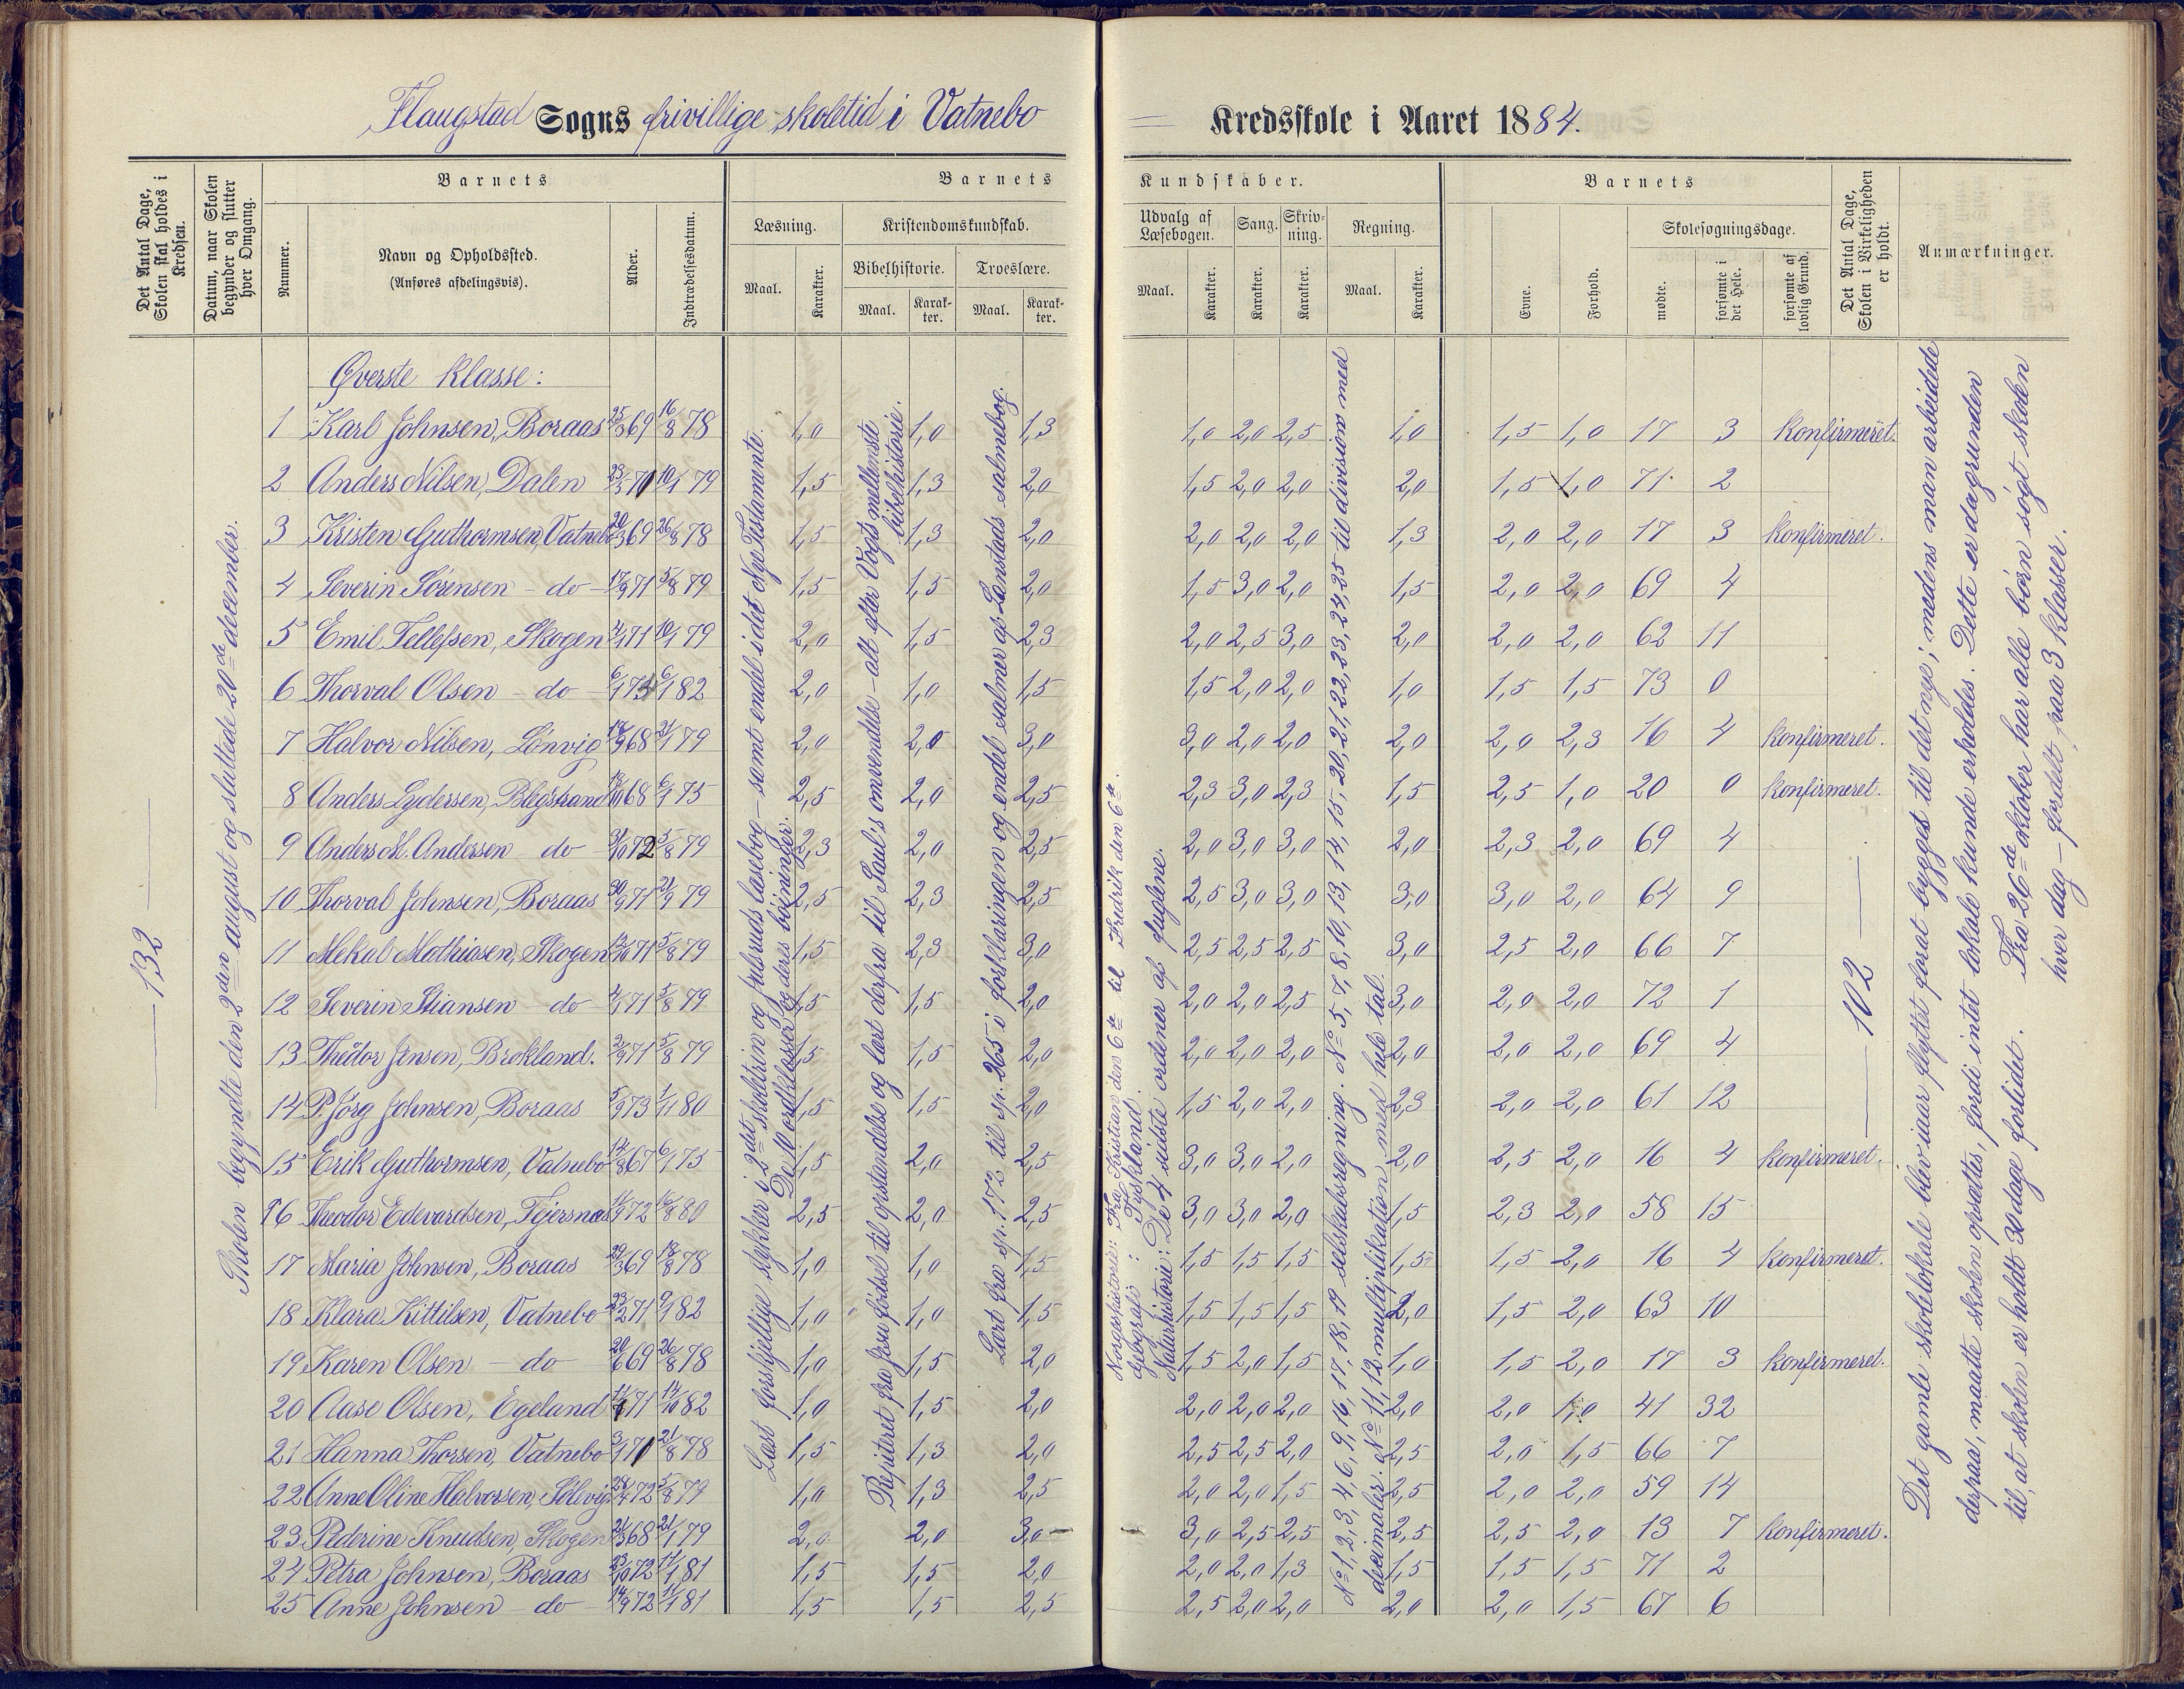 Flaugstad Sogns frivillige skoletid i Vatnebo Kredsskole i Aaret 1884.
Det Antal Dage, Skolen skal holdes i Kredsen.
Datum, naar Skolen begynder og slutter hver Omgang.
Barnets
Nummer.
Navn og Opholdssted.
(Anføres afdelingsvis).
Alder.
Indtrædelsesdatum.
Barnets Kundskaber.
Læsning.
Maal. Karakter.
Kristendomskundskab.
Bibelhistorie. Troeslære.
Maal. Karakter. Maal. Karakter.
Udvalg af Læsebogen. Sang. Skrivning. Regning.
Maal. Karakter. Karakter. Karakter. Maal. Karakter.
Barnets
Evne. Forhold.
Skolesøgningsdage.
mødte. forsømte i det Hele. forsømte af lovlig Grund.
Det Antal Dage, Skolen i Virkeligheden er holdt.
Anmærkninger.
132
Skolen begyndte den 2den august og sluttede 20de december.
Øverste klasse:
1 Karl Johnsen, Boraas 25/3 69 16/8 78 1,0 1,0 1,3 1,0 2,0 2,5 1,0 1,5 1,0 17 3 Konfirmeret.
2 Anders Nilsen, Dalen 23/5 71 10/1 79 1,5 1,3 2,0 1,5 2,0 2,0 2,0 1,5 1,0 71 2
3 Kristen Guthormsen, Vatnebo 20/3 69 26/8 78 1,5 1,3 2,0 2,0 2,0 2,0 1,3 2,0 2,0 17 3 Konfirmeret.
4 Severin Sørensen - do - 17/9 71 5/8 79 1,5 1,5 2,0 1,5 3,0 2,0 1,5 2,0 2,0 69 4
5 Emil Tellefsen, Skogen 4/1 71 10/1 79 2,0 1,5 2,3 2,0 2,5 3,0 2,0 2,0 2,0 62 11
6 Thorval Olsen - do - 6/1 73 6/1 82 2,0 1,0 1,5 1,5 2,0 2,0 1,0 1,5 1,5 73 0
7 Halvor Nilsen, Lønvig 68 21/1 79 2,0 2,0 3,0 3,0 2,0 2,0 2,0 2,0 2,3 16 4 Konfirmeret.
8 Anders Lydersen, Blegstrand 68 6/1 75 2,5 2,0 2,5 2,3 3,0 2,3 1,5 2,5 1,0 20 0 Konfirmeret.
9 Anders M. Andersen - do - 31/10 72 5/8 79 2,3 2,0 2,5 2,0 3,0 3,0 2,0 2,3 2,0 69 4
10 Thorval Johnsen, Boraas 30/9 71 21/9 79 2,5 2,3 2,5 2,5 3,0 3,0 3,0 3,0 2,0 64 9
11 Mekal Mathiasen, Skogen 12/10 71 5/8 79 1,5 2,3 3,0 2,5 2,5 2,5 3,0 2,5 2,0 66 7
12 Severin Stiansen - do - 4/1 71 5/8 79 1,5 1,5 2,0 2,0 2,0 2,5 3,0 2,0 2,0 72 1
13 Theodor Jensen, Brokland. 2/9 71 5/8 79 1,5 1,5 2,0 2,0 2,0 2,0 2,0 2,0 2,0 69 4
14 P. Jørg Johnsen, Boraas 5/9 73 1/11 80 1,5 1,5 2,0 1,5 2,0 2,0 2,3 2,0 2,0 61 12
15 Erik Guthormsen, Vatnebo 14/8 67 6/1 75 1,5 2,0 2,5 3,0 3,0 2,0 2,0 2,5 2,0 16 4 Konfirmeret.
16 Theodor Edevardsen, Tjersnæs 72 16/8 80 2,5 2,0 2,5 3,0 3,0 2,0 1,5 2,3 2,0 58 15
17 Maria Johnsen, Boraas 29/3 69 18/8 78 1,0 1,0 1,5 1,5 1,5 1,5 1,5 1,5 2,0 16 4 Konfirmeret.
18 Klara Kittilsen, Vatnebo 23/2 71 9/1 82 1,0 1,0 1,5 1,5 1,5 1,5 2,0 1,5 2,0 63 10
19 Karen Olsen - do - 20/6 69 26/8 78 1,0 1,5 2,0 1,5 2,0 1,5 1,0 1,5 2,0 17 3 Konfirmeret.
20 Aase Olsen, Egeland 71 14/10 82 1,0 1,5 2,0 2,0 2,0 2,0 2,0 2,0 1,0 41 32
21 Hanna Thorsen, Vatnebo 3/1 71 21/8 78 1,5 1,3 2,0 2,5 2,5 2,0 2,5 2,0 1,5 66 7
22 Anne Oline Halvorsen, Sølevig 72 5/8 79 1,0 1,3 2,5 2,0 2,0 1,5 2,5 2,0 2,0 59 14
23 Pederine Knudsen, Skogen 21/3 68 21/1 79 2,0 2,0 3,0 3,0 2,5 2,5 2,5 2,5 2,0 13 7 Konfirmeret.
24 Petra Johnsen, Boraas 23/10 72 11/1 81 1,5 1,5 2,0 2,0 2,0 1,3 1,5 1,5 1,5 71 2
25 Anne Johnsen - do 14/9 72 11/1 81 1,5 1,5 2,5 2,5 2,0 2,0 2,0 2,0 1,5 67 6
Læst forskjellige stykker i 2det skoletrin og Julsruds læsebog - samt endel i det Nye Testamente.
De 10 ordklasser og deres bøininger.
Repiteret fra Jesu fødsel til opstandelse og lært derfra til Saul's omvendelse - alt efter Vogts mellemste
bibelhistorie.
Lært fra sp. 172 til sp. 265 i forklaringen og endel salmer af Landstads salmebog.
Norgeshistorie: Fra Kristian den 6te til Fredrik den 6te.
Geografi: Tyskland.
Naturhistorie: De 4 sidste ordener af fuglene.
No 1, 2, 3, 4, 6, 9, 16, 17, 18, 19 selskabsregning. No 5, 7, 8, 10, 13, 14, 15, 20, 21, 22, 23, 24, 25 til division med
decimaler. No 11, 12 multiplikation med hele tal.
102
Det gamle skolelokale blev iaar flyttet forat bygges til det nye; medens man arbeidede
derpaa, maatte skolen opsættes, fordi intet lokale kunde erholdes. Dette er dagrunden
til, at skolen er holdt 30 dage forlidet. Fra 26de oktober har alle børn søgt skolen
hver dag - fordelt paa 3 klasser.